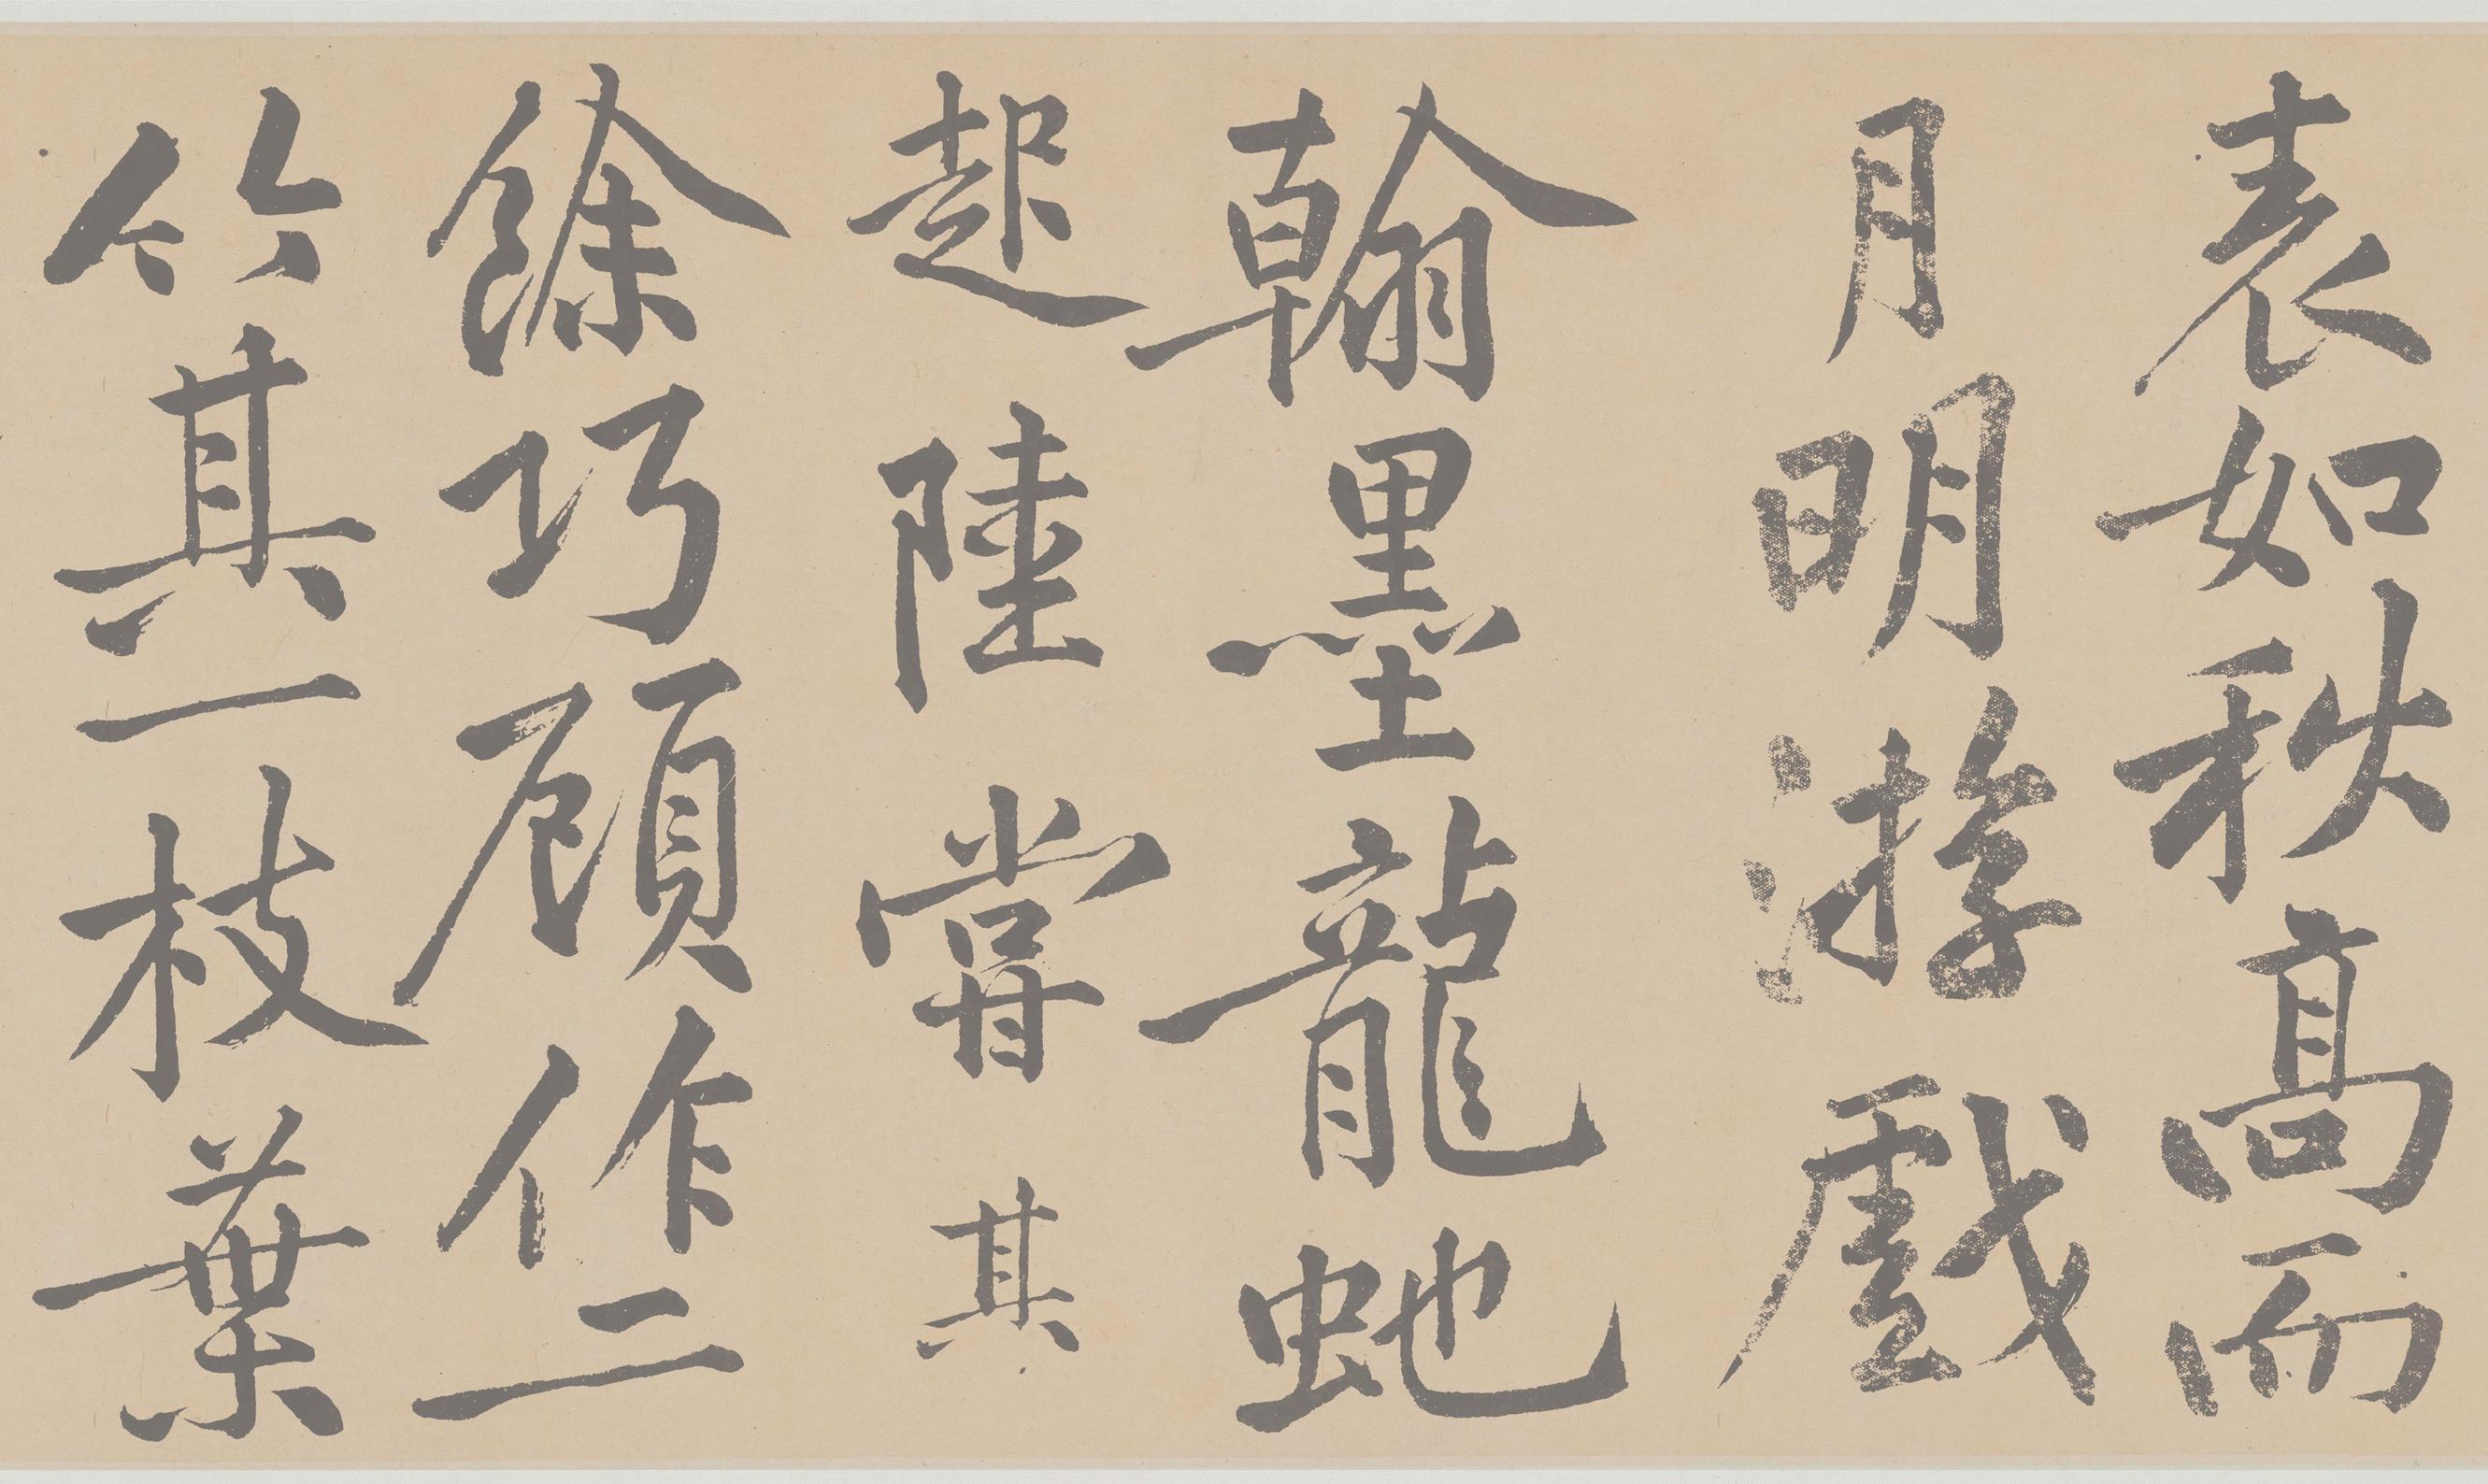 表如秋高而
月明游戲
翰墨龍虵
起陸嘗其
餘巧顧作二
竹其一枝葉